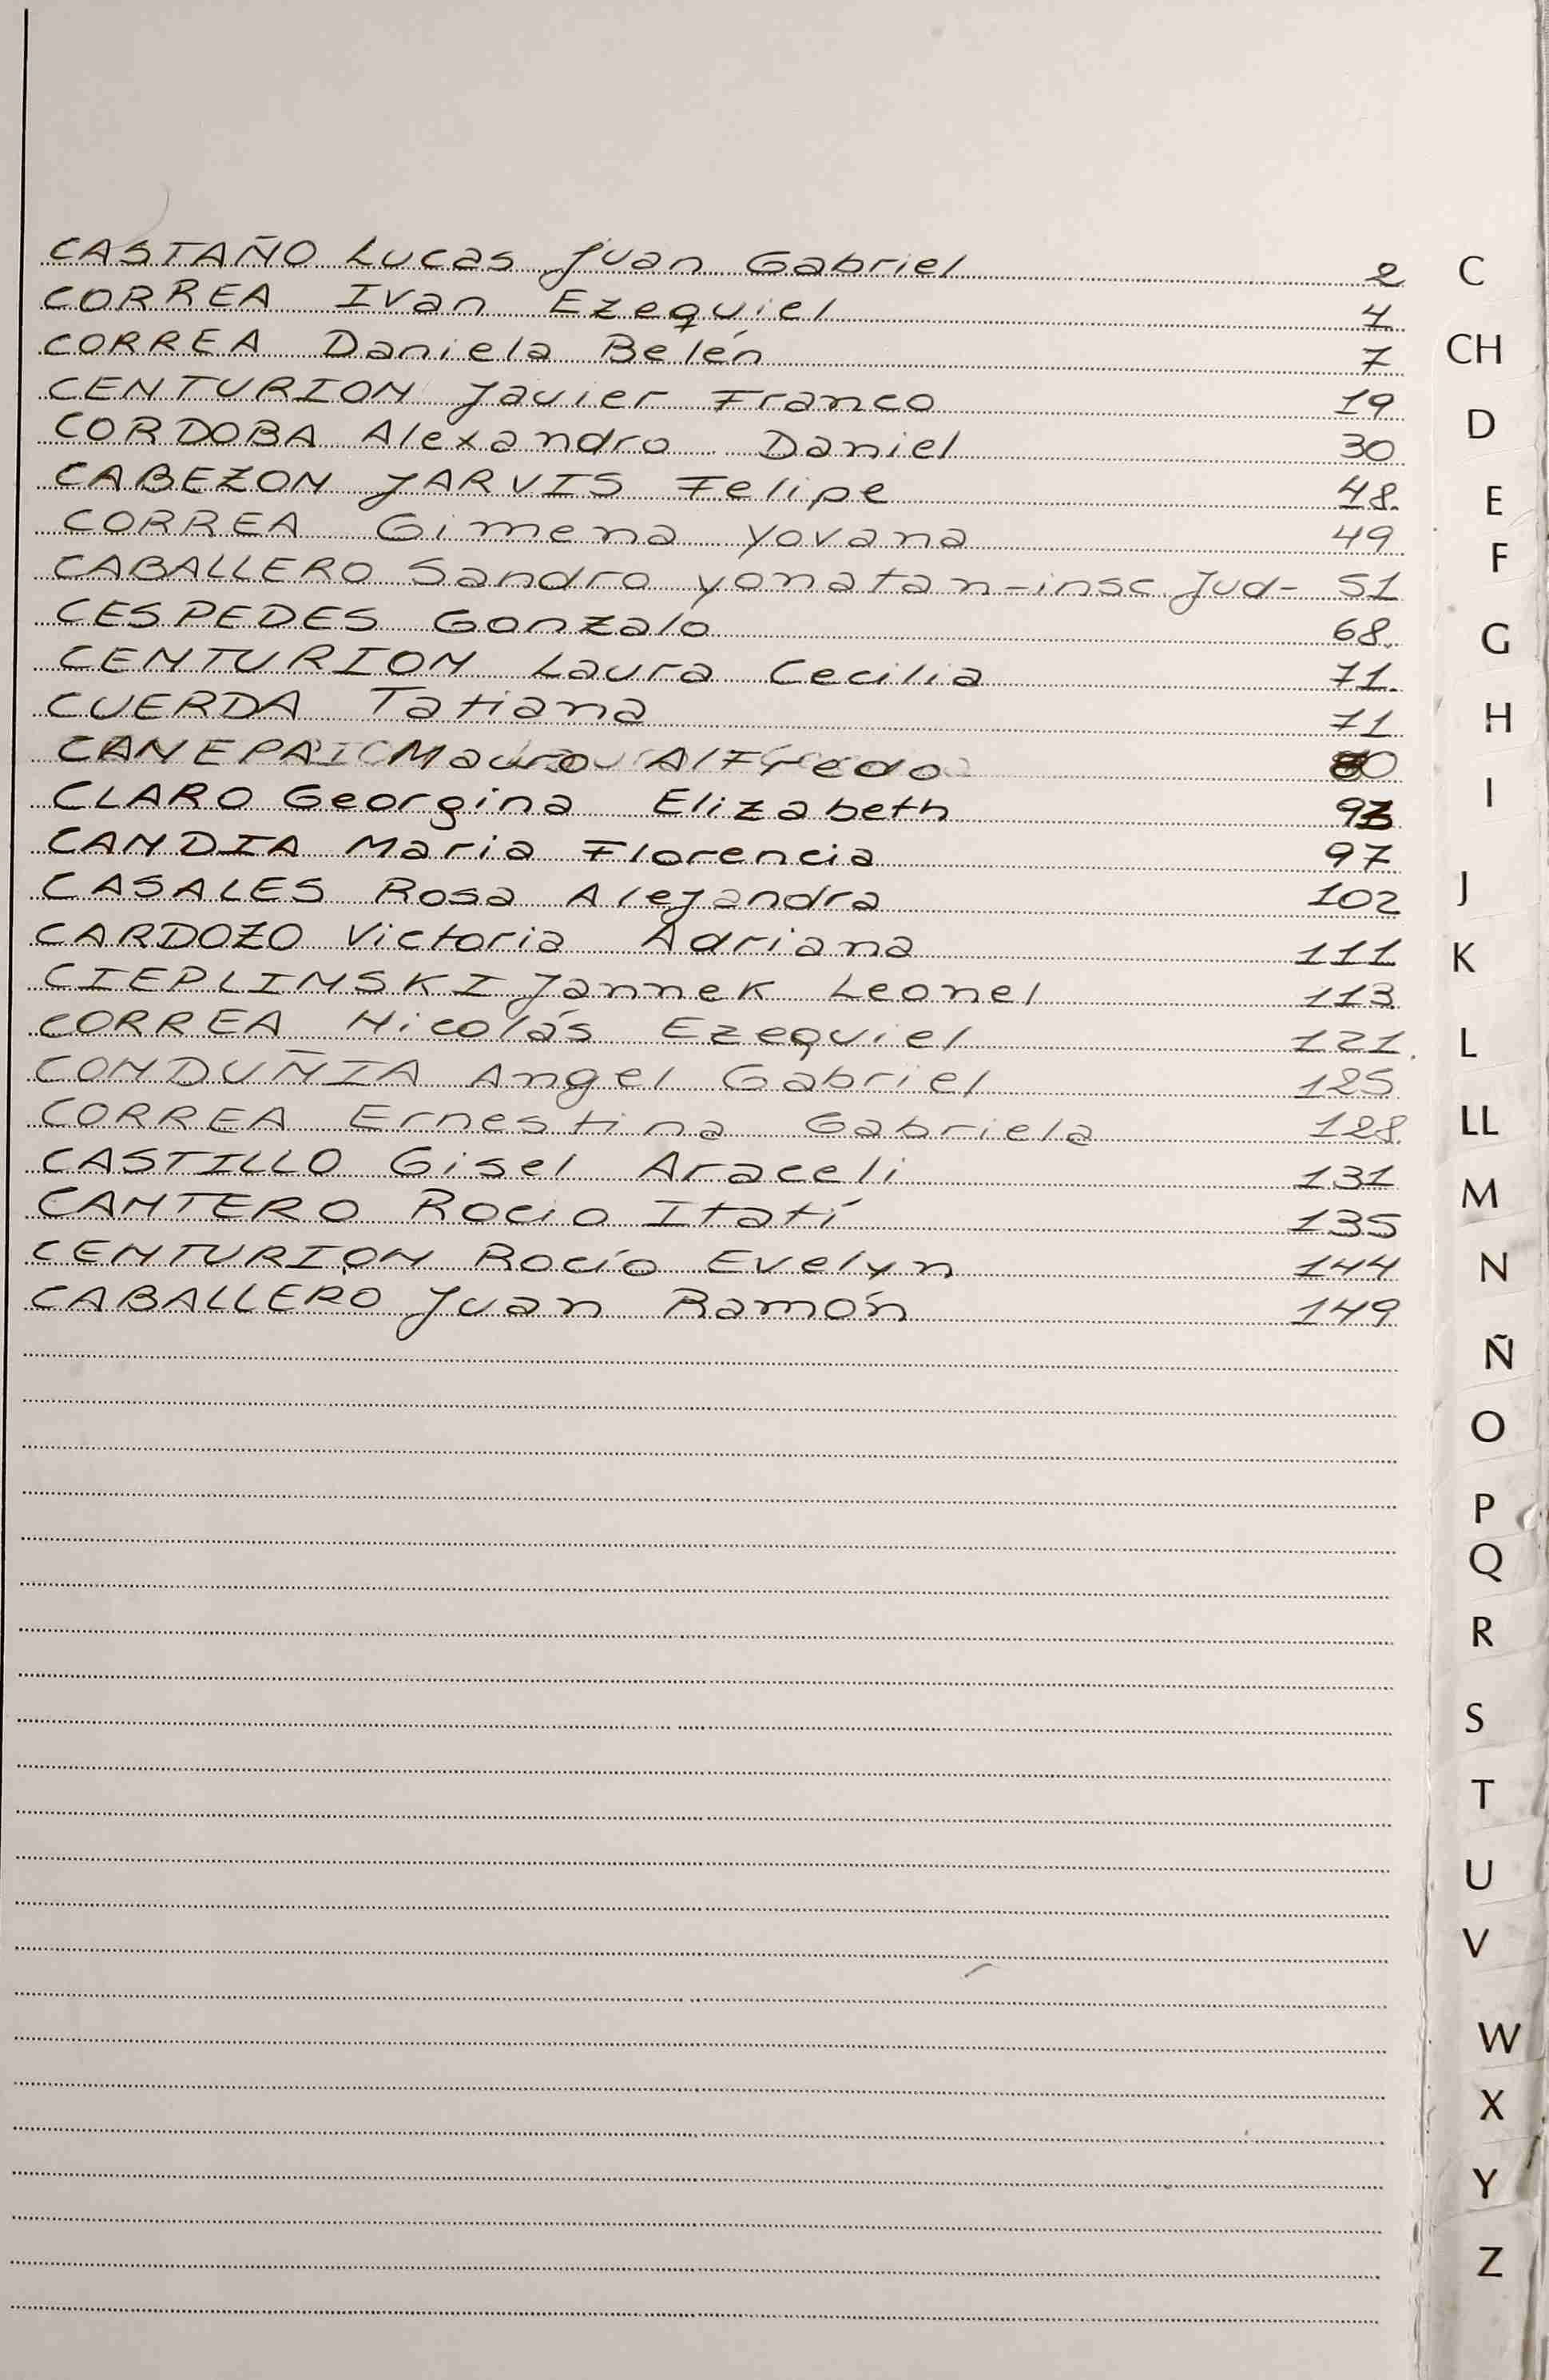 CASTAÑO Lucas Juan Gabriel 2
CORREA Ivan Ezequiel 4
CORREA Daniela Belén 7
CENTURION Javier Franco 19
CORDOBA Alexandro Daniel 30
CABEZON JARVIS Felipe 48
CORREA Gimena Yovana 49
CABALLERO Sandro Yonatan-insc. Jud- 51
CESPEDES Gonzalo 68
CENTURION Laura Cecilia 71
CUERDA Tatiana 71
CANEPA Mauro Alfredo
CLARO Georgina Elizabeth
CANDIA Maria Florencia 97
CASALES Rosa Alejandra 102
CARDOZO Victoria Adriana 111
CIEPLINSKI Jannek Leonel 113
CORREA Nicolás Ezequiel 121
CONDUÑIA Angel Gabriel 125
CORREA Ernestina Gabriela 128
CASTILLO Gisel Araceli 131
CANTERO Rocio Itatí 135
CENTURION Rocío Evelyn 144
CABALLERO Juan Ramón 149
C
CH
D
E
F
G
H
I
J
K
L
LL
M
N
Ñ
O
P
Q
R
S
T
U
V
W
X
Y
Z